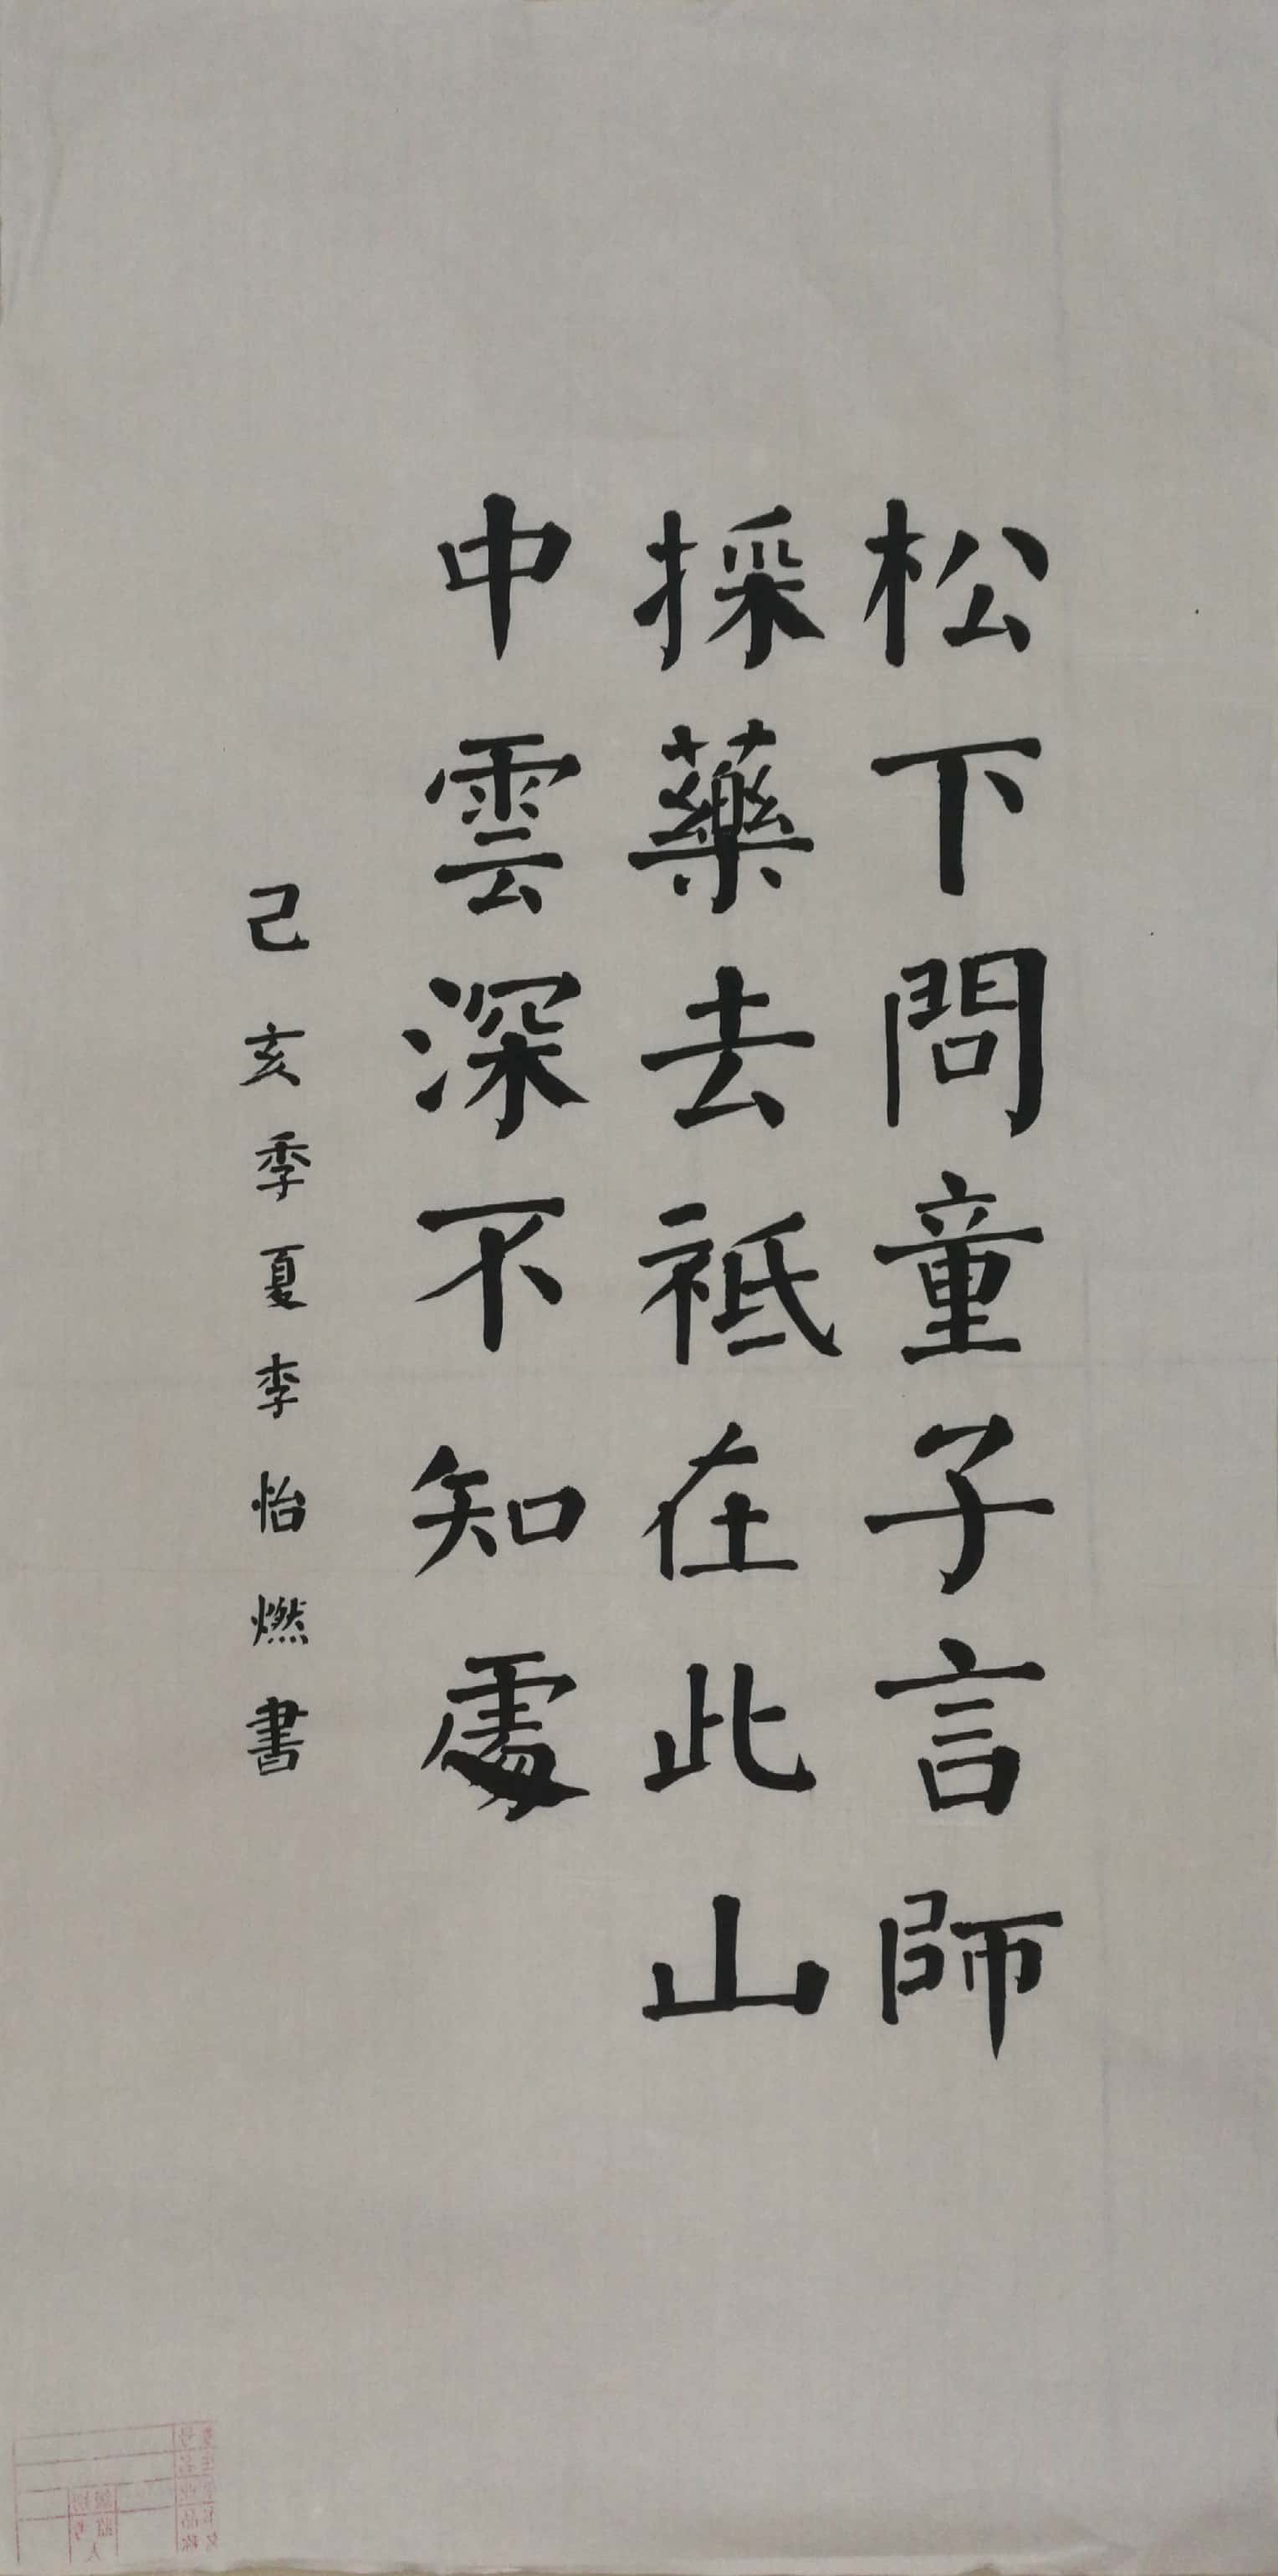 松下問童子言師
採藥去祗在此山
中雲深不知處
己亥季夏李怡燃書